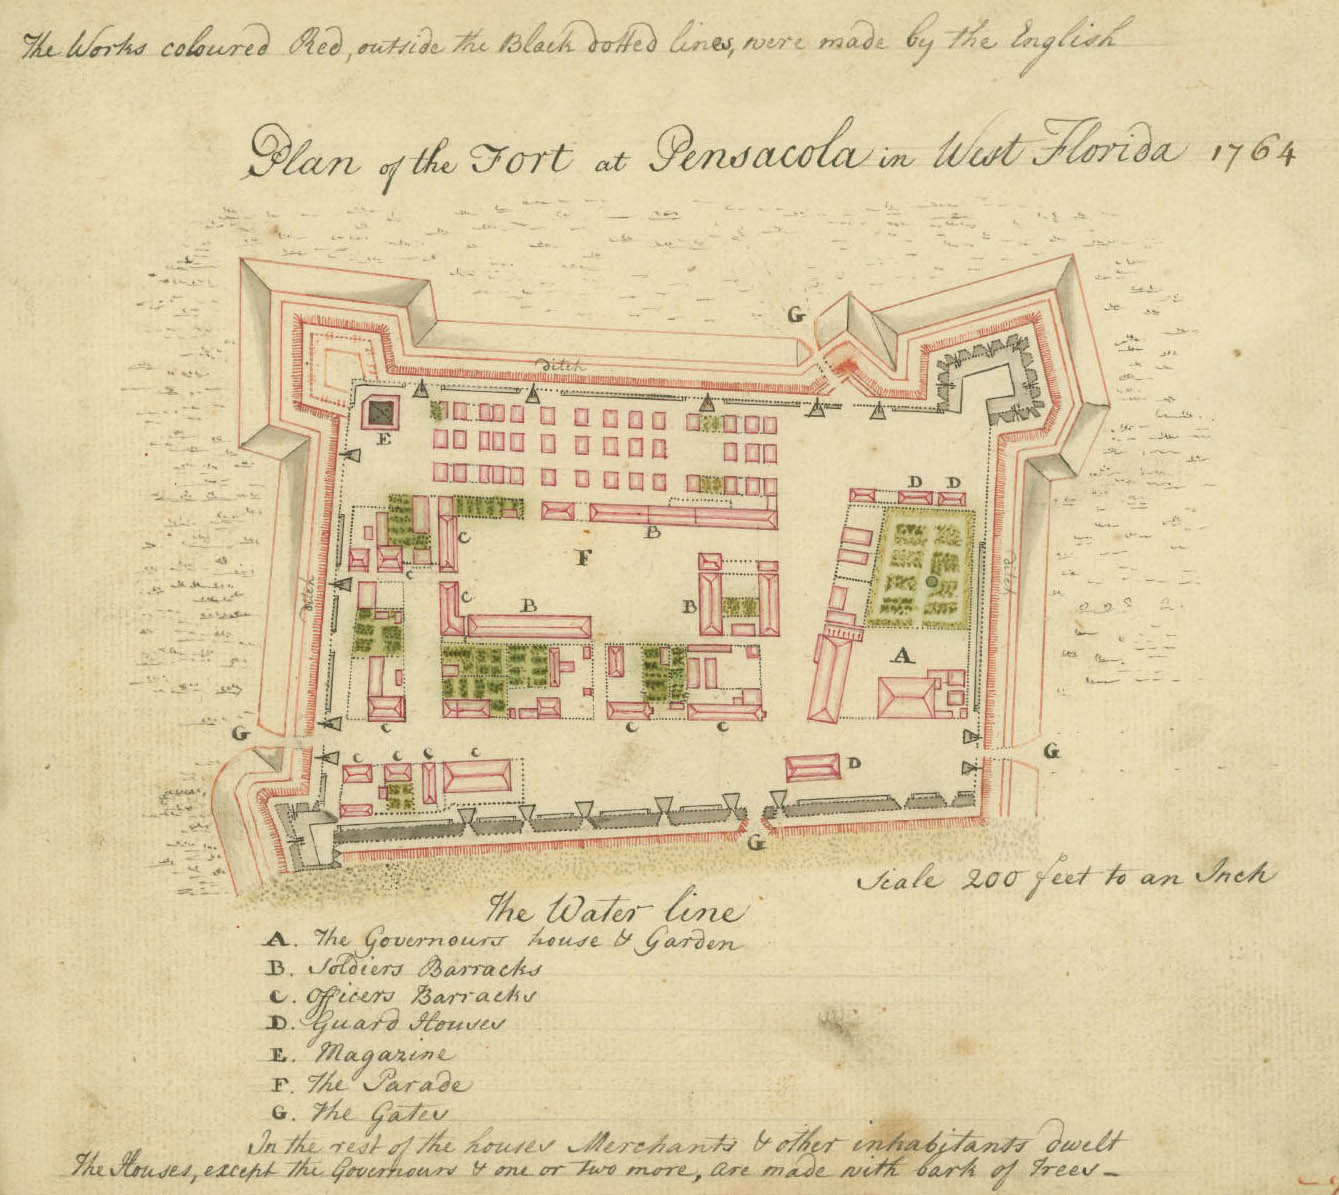 The Works coloured Red, outside the Black dotted lines, were made by the English
Plan of the Fort at Pensacola in West Florida 1764
G
ditch
E
D D
B
C
F
C
ditch
C
B
B
ditch
A
C
C
C
G
G
C C C C
D
G
Scale 200 feet to an Inch
The Water line
A. The Governours house & Garden
B. Soldiers Barracks
C. Officers Barracks
D. Guard Houses
E. Magazine
F. The Parade
G. The Gates
In the rest of the houses Merchants & other inhabitants dwelt
The Houses, except the Governours & one or two more, are made with bark of Trees—